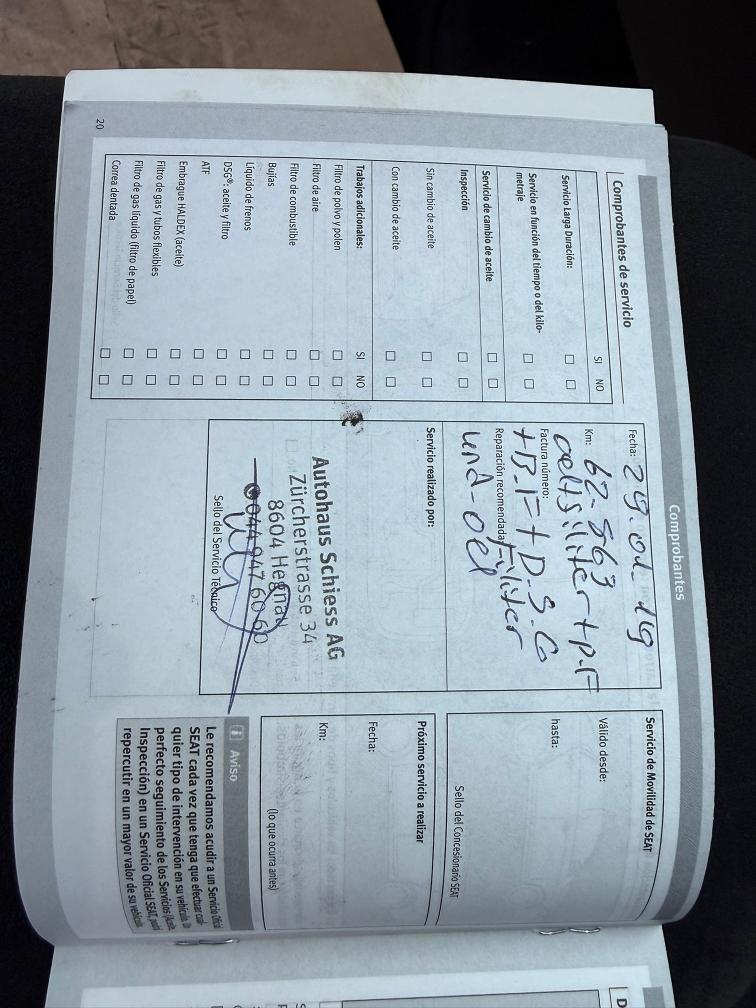 Comprobantes
Comprobantes de servicio
SI NO
Servicio Larga Duración:
Servicio en función del tiempo o del kilo-
metraje
Servicio de cambio de aceite
Inspección
Sin cambio de aceite
Con cambio de aceite
Trabajos adicionales:
SI NO
Filtro de polvo y polen
Filtro de aire
Filtro de combustible
Bujías
Líquido de frenos
DSG®: aceite y filtro
ATF
Embrague HALDEX (aceite)
Filtro de gas y tubos flexibles
Filtro de gas líquido (filtro de papel)
Correa dentada
20
Fecha: 29.01.19
Km: 62.563
oelfsiliter + p.F
Factura número:
+B.F + D.S.G
Reparación recomendada: Filiter
und-oel
Servicio realizado por:
Autohaus Schiess AG
Zürcherstrasse 34
8604 Hegnau
044 947 60 60
Sello del Servicio Técnico
Servicio de Movilidad de SEAT
Válido desde:
hasta:
Sello del Concesionario SEAT
Próximo servicio a realizar
Fecha:
Km:
(lo que ocurra antes)
i Aviso
Le recomendamos acudir a un Servicio Oficial
SEAT cada vez que tenga que efectuar cual-
quier tipo de intervención en su vehículo.
perfecto seguimiento de los Servicios (Aceite,
Inspección) en un Servicio Oficial SEAT,
repercutir en un mayor valor de su vehículo.